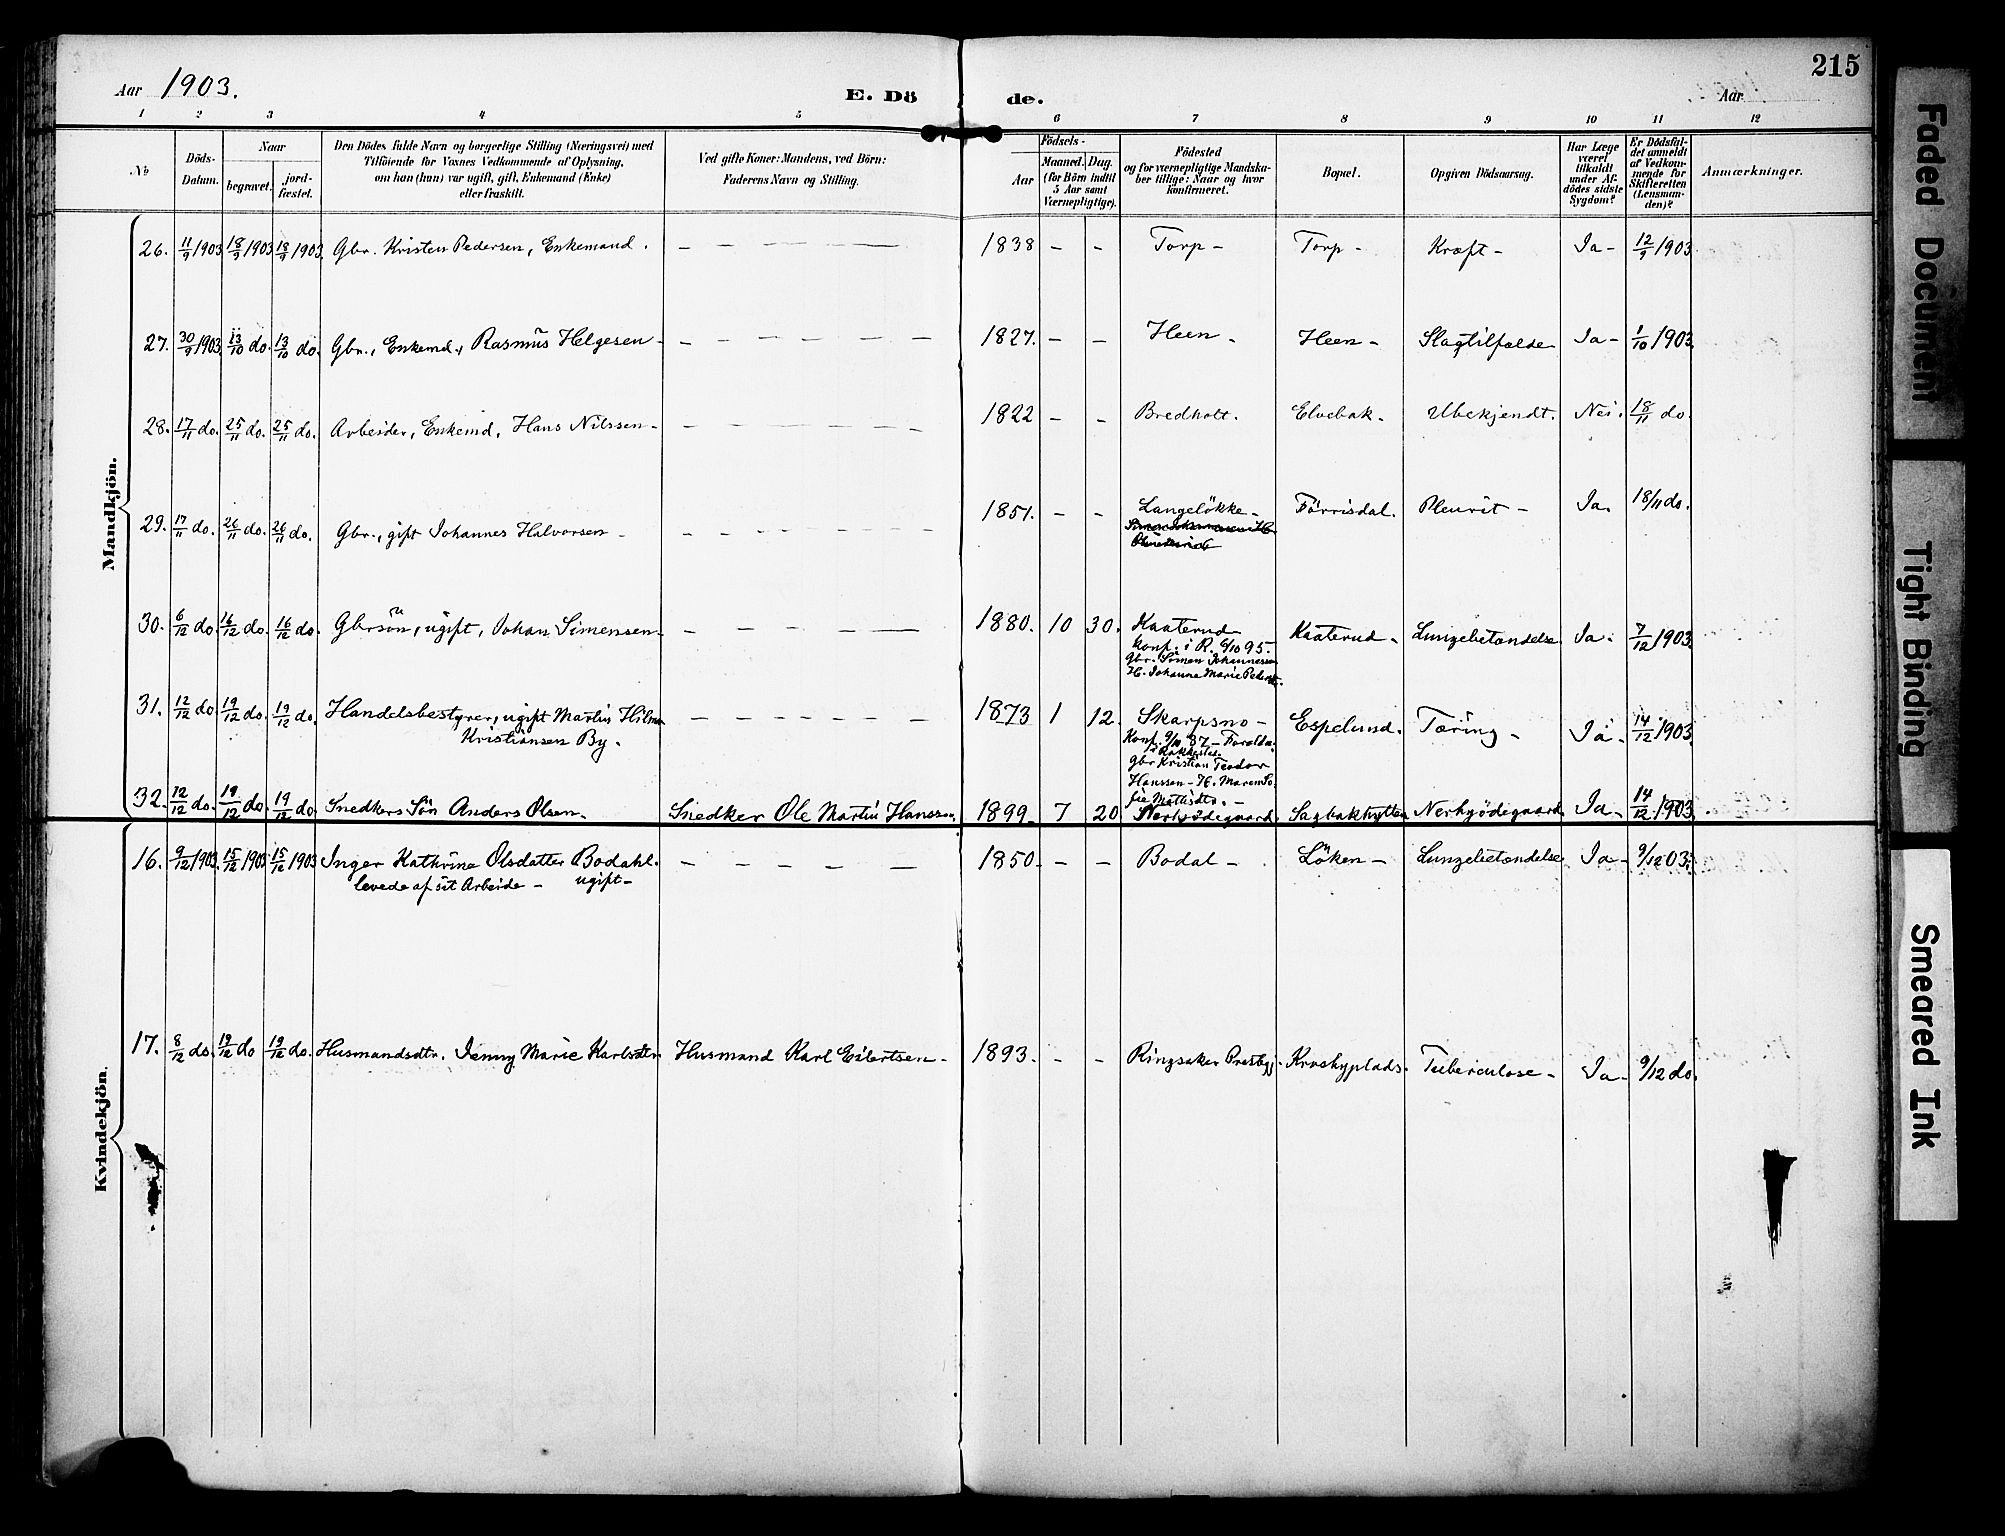 215
Aar 1903.
E. Döde.
Aar
1 2 3 4 5 6 7 8 9 10 11 12
No
Döds-Datum.
Naar
begravet.
jord-fæstet.
Den Dödes fulde Navn og borgerlige Stilling (Næringsvei) med
Tilföiende for Voxnes Vedkommende af Oplysning,
om han (hun) var ugift, gift, Enkemand (Enke)
eller fraskilt.
Ved gifte Koner: Mandens, ved Börn:
Faderens Navn og Stilling.
Födsels-
Aar
Maaned. Dag.
(for Börn indtil
5 Aar samt
Værnepligtige).
Födested
og for værnepligtige Mandska-
ber tillige: Naar og hvor
konfirmeret.
Bopæl.
Opgiven Dödsaarsag.
Har Læge
været
tilkaldt
under Af-
dödes sidste
Sygdom?
Er Dödsfal-
det anmeldt
af Vedkom-
mende for
Skifteretten
(Lensman-
den)?
Anmærkninger.
Mandkjön.
26. 11/9 1903 18/9 1903 18/9 1903. Gbr. Kristen Pedersen, Enkemand. – – – – – 1838 – – Torp – Torp – Kræft – Ja – 12/9 1903.
27. 30/9 1903. 13/10 do. 13/10 do. Gbr., Enkemd., Rasmus Helgesen – – – – – – 1827. – – Heen – Heen – Slagtilfælde Ja – 1/10 1903.
28. 17/11 do. 25/11 do. 25/11 do. Arbeider, Enkemd, Hans Nilssen – – – – – – 1822 – – Bredholt. Elvebak. Ubekjendt. Nei. 18/11 do.
29. 17/11 do. 26/11 do. 26/11 do. Gbr., gift Johannes Halvorsen – – – – – – 1851. – – Langelökke – Förrisdal. Pleurit – Ja. 18/11 do.
30. 6/12 do. 16/12 do. 16/12 do. Gbrsön, ugift, Johan Simensen – – – – – 1880. 10 30. Kaaterud Kaaterud – Lungebetændelse Ja. 7/12 1903.
konf. i R. 6/10 95.
Gbr. Simen Johannessen
H. Johanne Marie Peders
31. 12/12 do. 19/12 do. 19/12 do. Handelsbestyrer, ugift Martin Hilmar – – – – – – 1873 1 12. Skarpsno – Espelund. Tæring – Ja – 14/12 1903.
Kristiansen By.
Konf. 9/10 87 – Foreldre
i Rakkestad
Gbr Kristian Teodor
Hanssen – H. Maren So
fie Mathidtr. –
32. 12/12 do. 19/12 do. 19/12 do. Snedkers Sön Anders Olsen. Snedker Ole Martin Hanssen. 1899. 7 20 Nerbyödegaard Sagbakhytten Nerbyödegaard Ja – 14/12 1903.
Kvindekjön.
16. 9/12 1903. 15/12 1903. 15/12 1903 Inger Kathrine Olsdatter Bodahl. – – – – – 1850. – – Bodal – Löken – Lungebetændelse Ja – 9/12 03.
levede af sit Arbeide – ugift –
17. 8/12 do. 19/12 do 19/12 do. Husmandsdtr. Jenny Marie Karlsdtr Husmand Karl Eilertsen – 1893. – – Ringsaker Prestegj. Krosbyplads. Tuberculose – Ja – 9/12 do.
Faded Document
Tight Binding
Smeared Ink